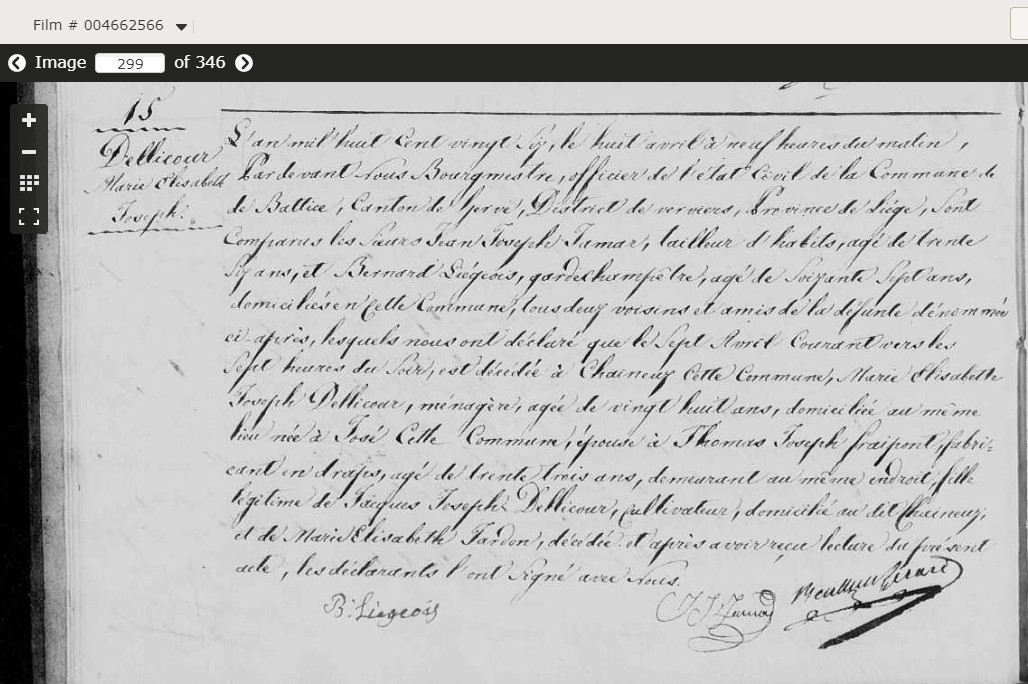 Film # 004662566
Image 299 of 346
15
Dellicour
Marie Elisabeth
Joseph.
L'an mil huit Cent vingt Six, le huit avril à neuf heures du matin,
Pardevant Nous Bourgmestre, officier de l'état Civil de la Commune de
de Battice, Canton de herve, District de verviers, Province de Liége, Sont
Comparus les Sieurs Jean Joseph Jamar, tailleur d'habits, agé de trente
Six ans, et Bernard Liégeois, gardechampêtre, agé de Soixante Sept ans,
domiciliés en Cette Commune, tous deux voisins et amis de la défunte dénommée
ci-après, lesquels nous ont déclaré que le Sept Avril Courant vers les
Sept heures du Soir, est décédée à Chaineux Cette Commune, Marie Elisabeth
Joseph Dellicour, ménagère, agée de vingt huit ans, domiciliée au même
lieu née à José Cette Commune, épouse à Thomas Joseph fraipont, fabri=
cant en draps, agé de trente trois ans, demeurant au même endroit, fille
légitime de Jacques Joseph Dellicour, Cultivateur, domicilié au dit Chaineux,
et de Marie Elisabeth Jardon, décédée. et après avoir reçu lecture du présent
acte, les déclarants l'ont Signé avec Nous.
B: Liegeois
J J Jamar